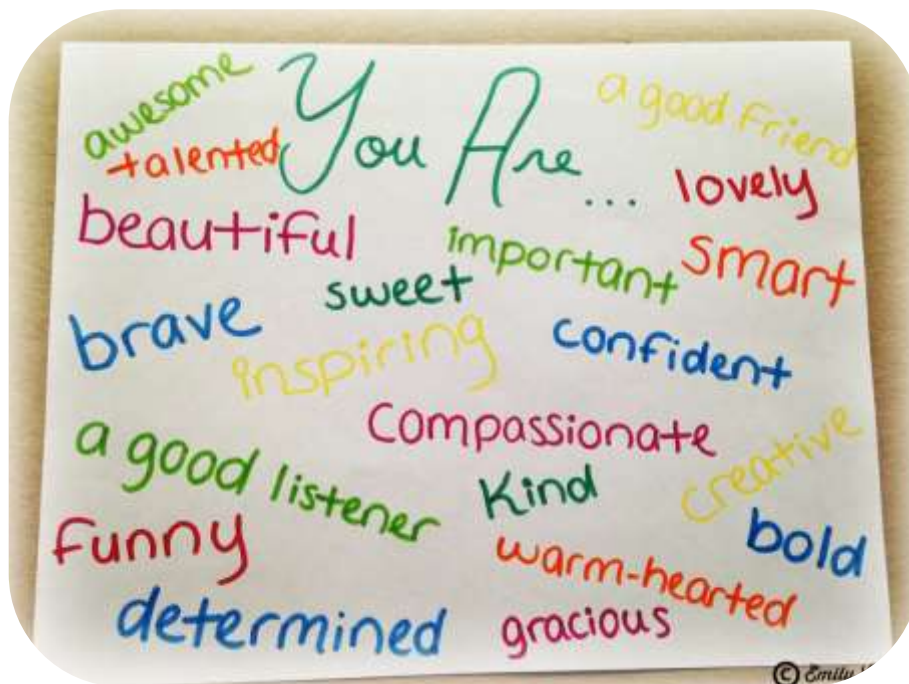 awesome
You Are...
a good friend
talented
lovely
beautiful
important
smart
sweet
brave
inspiring
confident
compassionate
a good listener
Kind
creative
funny
bold
warm-hearted
determined
gracious
© Emily